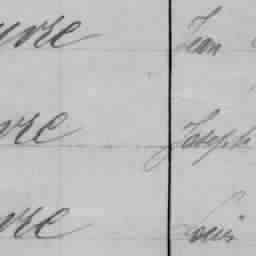 uvre Jean
vre Joseph
vre Louis